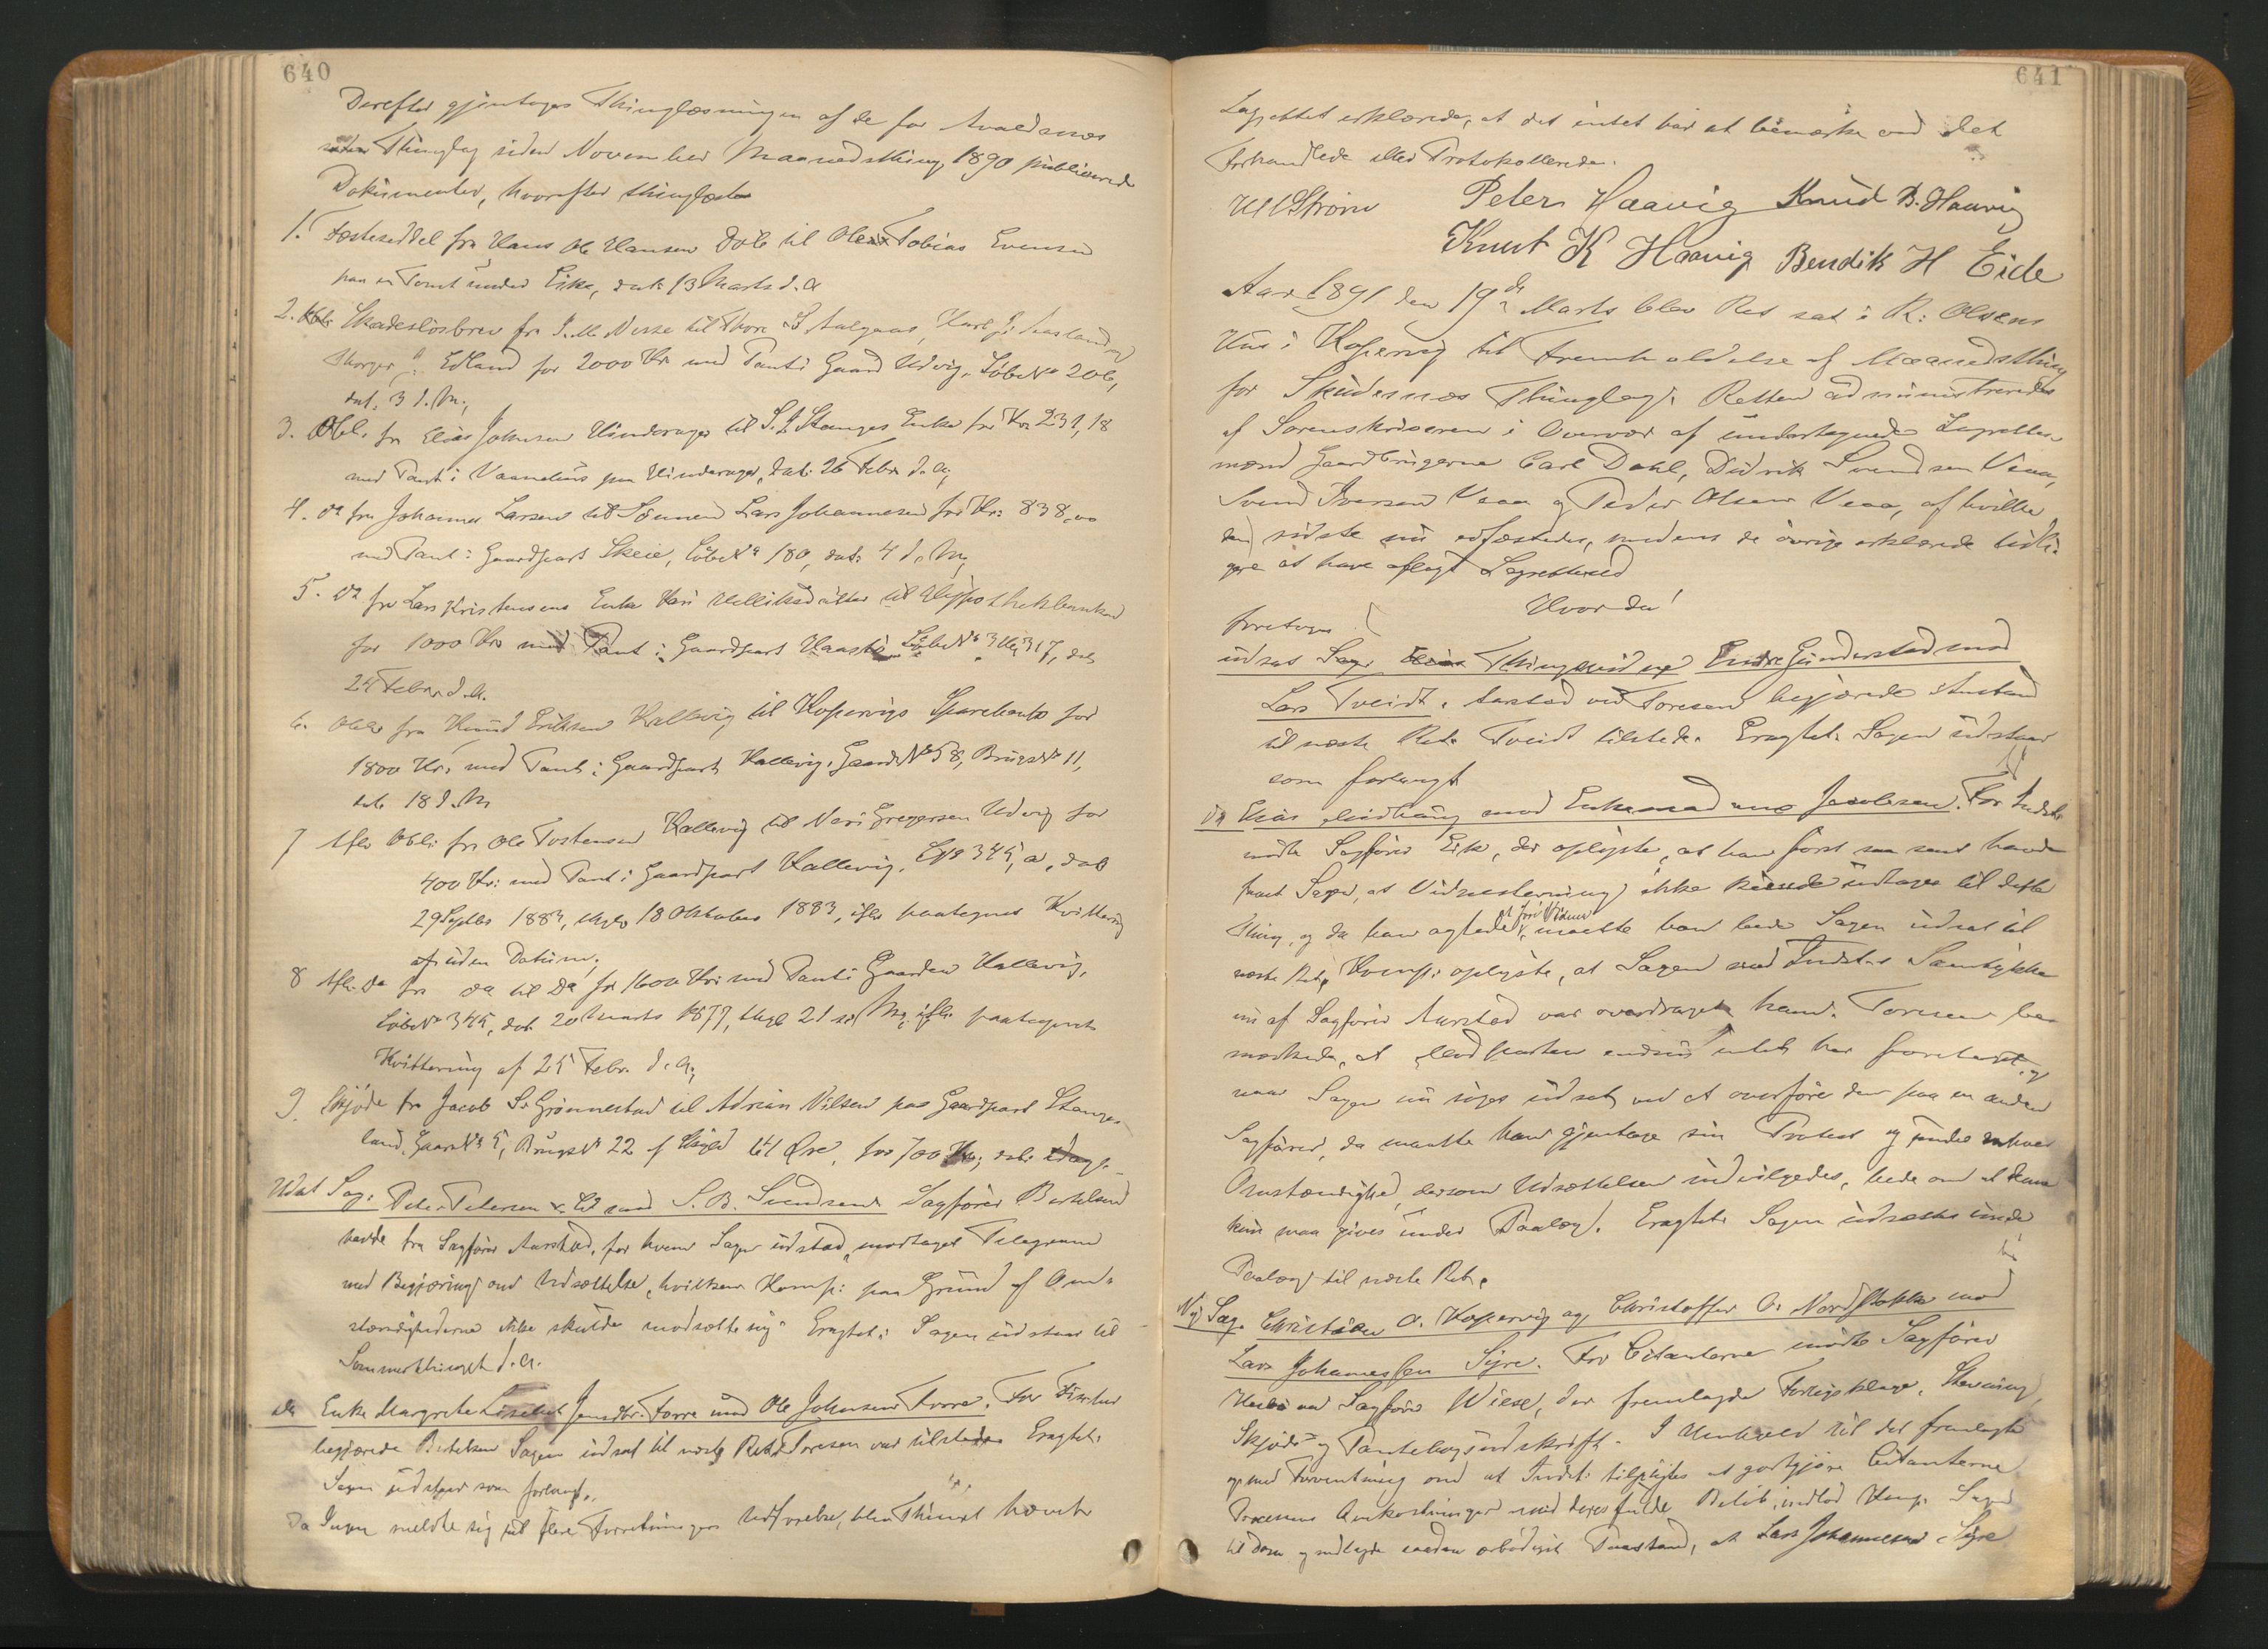 640
Derefter gjentoges Thinglæsningen af de for Avaldsnes
Thinglag siden November Maanedsthing 1890 publicerede
Dokumenter, hvorefter thinglæstes
1. Fæsteseddel fra Hans Ole Hansen Dale til Ole Tobias Evensen
paa en Tomt under Eike, dat: 13 Marts d. A
2. Skadesløsbrev fra I. M. Nesse til Thore S Aalgaard, Karl J.
Edland for 2000 Kr med Pant i Gaard Udvig, Løbe No 206,
dat. 3 d. M.;
3. Obl. fra Elias Johnsen Hinderager til S. J. Stanges Enke for Kr 231,18
med Pant i Vaanehus paa Hinderager, dat: 26 Febr. d. A;
4. do fra Johannes Larsen til Sønnen Lars Johannesen for Kr: 838,00
med Pant i Gaardpart Skeie, Løbe No 180, dat: 4 d. M;
5. do fra Lars Kristensens Enke til Hypothekbanken
for 1000 Kr med Pant i Gaardpart Løbe No 317, dat
24 Febr. d. A.
6. Obl. fra Knud Eriksen Kallevig til Kopervigs Sparebank for
1800 Kr. med Pant i Gaardpart Kallevig, Gaards No 58, Brugs No 11,
dat. 18 d. M
7 Afl. Obl: fra Ole Tostensen Kallevig til Gregersen Udvig for
400 Kr: med Pant i Gaardpart Kallevig, 345, a, dat
29 Septbr 1883, 18 Oktober 1883, ifl. paategnet Kvittering
af uden Datum;
8 Afl. do fra do til do for 1600 Kr: med Pant i Gaarden Kallevig,
Løbe No 345, dat. 20 Marts 1877, 21 s. M; ifl. paategnet
Kvittering af 25 Febr. d. A;
9. Skjøde fra Jacob S. Grønnestad til Adrian Nilsen paa Gaardpart Stange-
land, Gaards No 5, Brugs No 22 af Skyld 61 Øre, for 700 Kr; dat.
Udst Sag: Peter Petersen mod S. B. Svendsen. Sagfører Bertelsen
havde fra Sagfører Aarstad, for hvem Sagen udstod, modtaget Telegram
med Begjæring om Udsættelse, hvilken Komp: paa Grund af Om-
stændighederne ikke skulde modsætte sig. Eragtet: Sagen udstaar til
Sommerthinget d. A.
do Enke Margrete Lisebet Jensdtr. Førre mod Ole Johnsen Førre.
begjærede Bertelsen Sagen udsat til næste Ret. Toresen var tilstede. Eragtet:
Sagen udstaar som forlangt.
Da Ingen meldte sig til flere Forretningers Udførelse, blev Thinget hævet
641
Lagrettet erklærede, at det intet har at bemærke ved det
Forhandlede eller Protokollerede.
Strøm Peter Haavig Knud B. Haavig
Knut K Haavig Bendik H Eide
Aar 1891 den 19de Marts blev Ret sat i R. Olsens
Hus i Kopervig til Fremholdelse af Maanedsthing
for Skudesnes Thinglag. Retten administreredes
af Sorenskriveren i Overvær af undertegnede Lagrettes-
mænd Gaardbrugerne Carl Dahl, Didrik Svendsen Veaa,
Svend Iversen Veaa og Peder Olsen Veaa, af hvilke
den sidste nu edfæstedes, medens de øvrige erklærede tidli-
gere at have aflagt Lagrettesed
Hvorda!
foretoges
udsat Sag: Endre Gunderstad mod
Lars Tveidt. Aarstad ved Toresen begjærede Anstand
til næste Ret. Tveidt tilstede. Eragtet: Sagen udstaar
som forlangt
do Elias mod Jacobsen. For Indst.
mødte Sagfører Eik, der oplyste, at han først saa sent havde
faaet Sagen, at Vidnestevning ikke kunde udtages til dette
Thing, og da han agtede at føre Vidner, maatte han bede Sagen udsat til
næste Ret. Komp: oplyste, at Sagen med Indst.s Samtykke
nu af Sagfører Aarstad var overdraget ham. Toresen be-
mærkede, at Modparten endnu intet har foretaget, og
naar Sagen nu søges udsat ved at overføre den paa en anden
Sagfører, da maatte han gjentage sin Protest og under enhver
Omstændighed, dersom Udsættelsen indvilgedes, bede om at denne
kun maa gives under Paalæg. Eragtet: Sagen udsættes under
Paalæg til næste Ret.
Ny Sag. Christian O. Kopervig og Christoffer O. Nordstokke mod
Lars Johannessen Syre. For Citanterne mødte Sagfører
ved Sagfører Wiese, der fremlagde Forligsklage, Stevning,
Skjøde og Pantebogsudskrift. I Henhold til det fremlagte
og med Forventning om at Indst: tilpligtes at godtgjøre Citanterne
Processens Omkostninger med deres fulde Beløb, indlod Komp. Sagen
til Doms og nedlagde saadan ærbødigst Paastand, at Lars Johannessen Syre